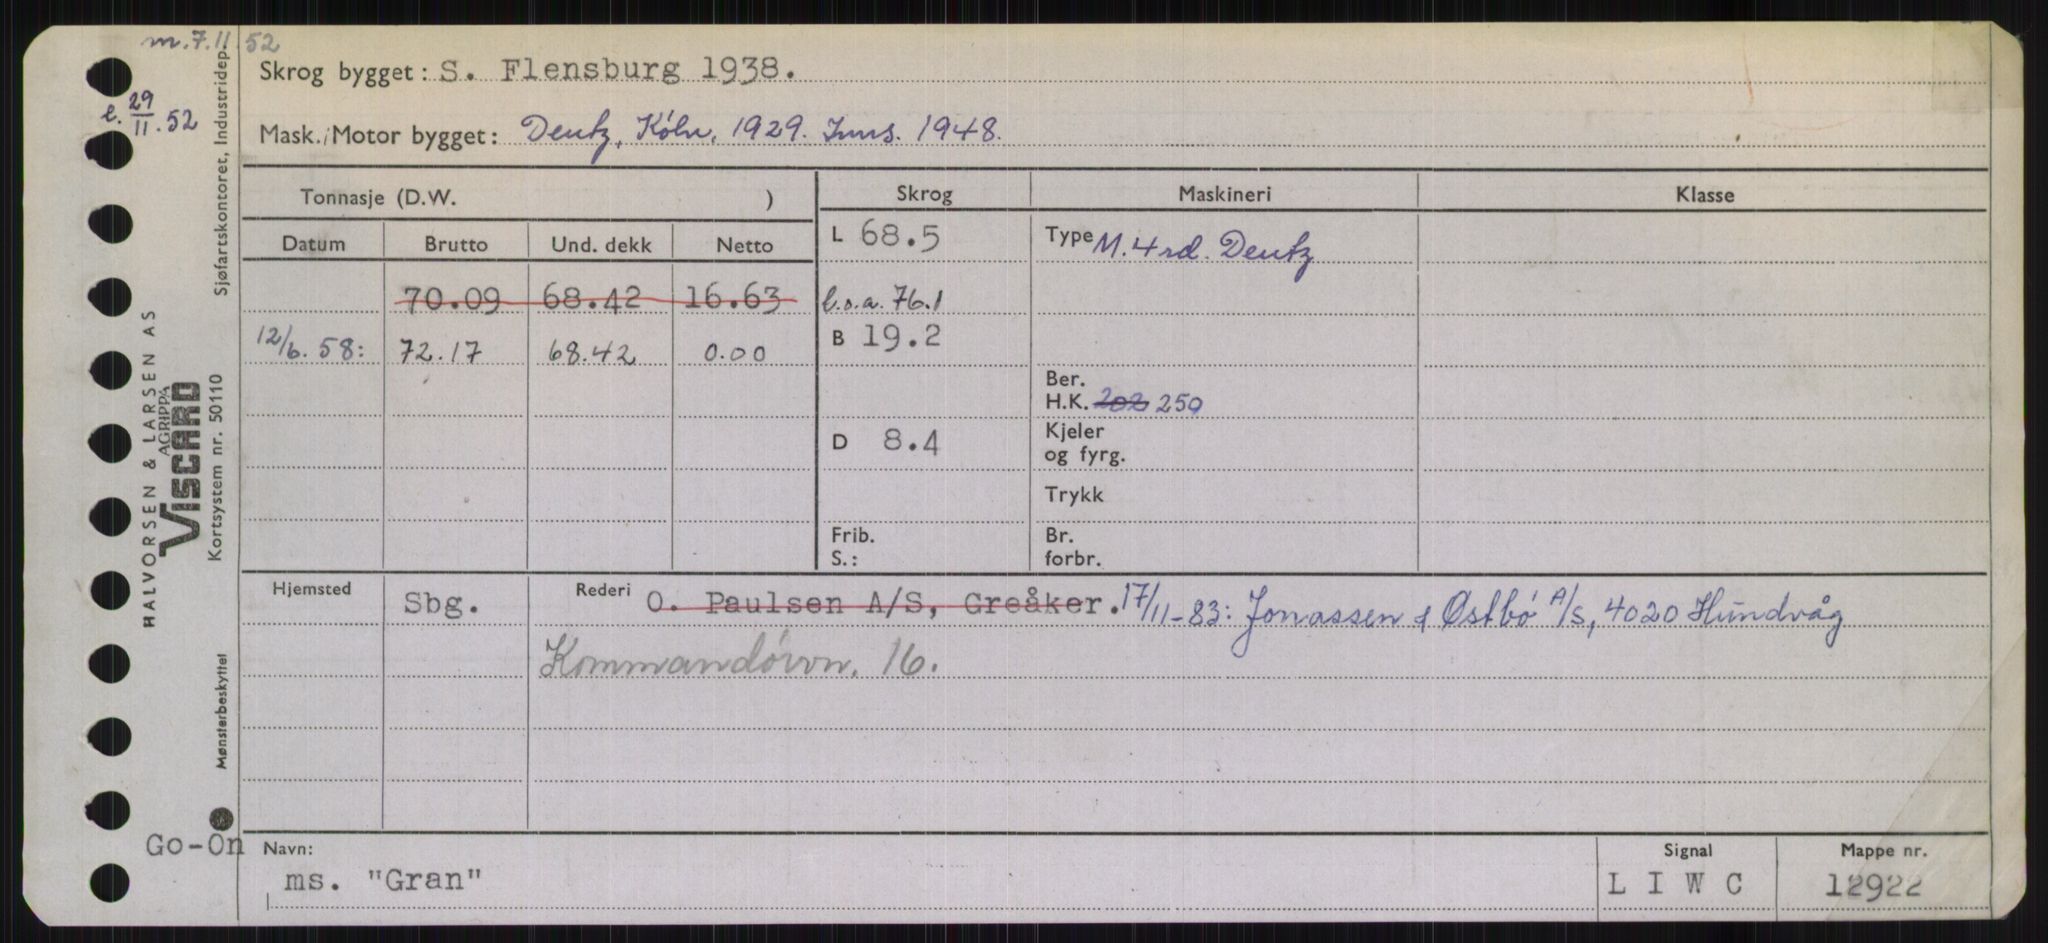 m. 7.11.52
Skrog bygget: S. Flensburg 1938.
l. 29/11.52
Mask./Motor bygget: Deutz, Köln, 1929. Inns. 1948.
Tonnasje (D.W. )
Skrog Maskineri Klasse
Datum Brutto Und. dekk Netto
L 68.5 Type M. 4rd. Deutz
70.09 68.42 16.63 l.o.a. 76.1
12/6. 58: 72.17 68.42 0.00 B 19.2
Ber.
H.K. 202 250
D 8.4 Kjeler
og fyrg.
Trykk
Frib. Br.
S.: forbr.
Hjemsted Sbg. Rederi O. Paulsen A/S, Greåker. 17/11-83: Jonassen & Østbø A/S, 4020 Hundvåg
Kommandørvn. 16.
Go-On Navn: Signal Mappe nr.
ms. "Gran" L I W C 12922
Sjøfartskontoret, Industridep.
HALVORSEN & LARSEN AS
AGRIPPA
VISCARD
Kortsystem nr. 50110
Mønsterbeskyttet